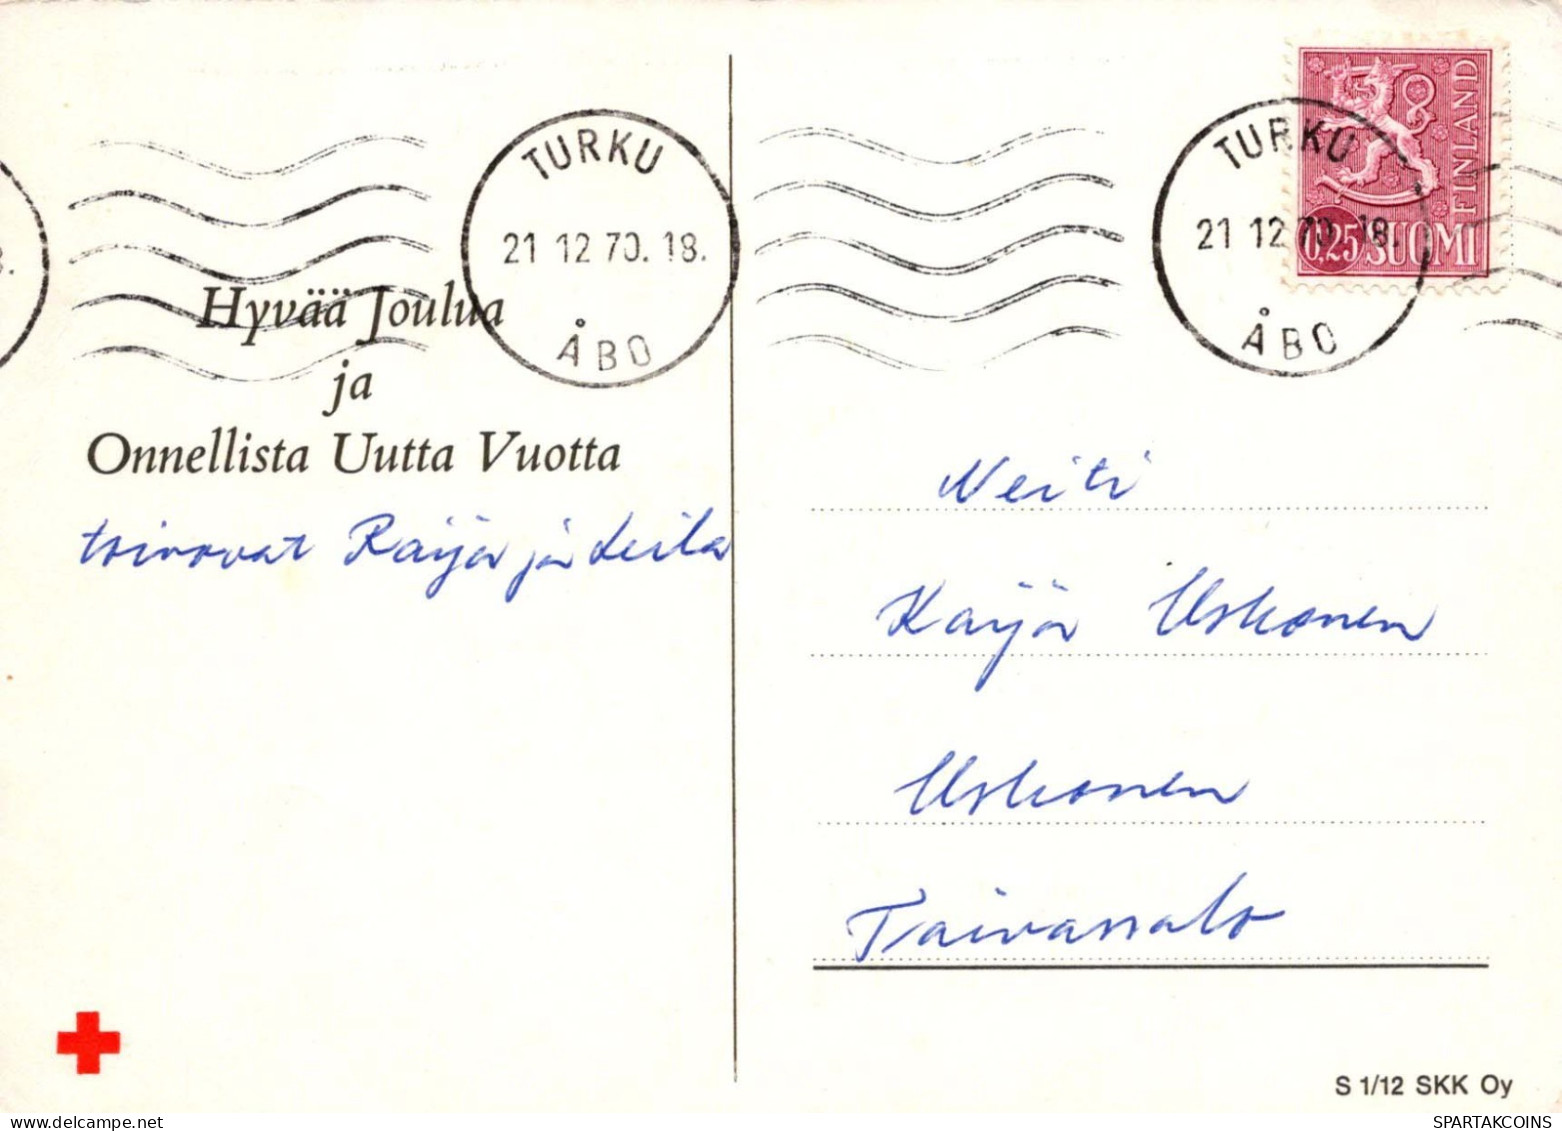 TURKU
21 12 70. 18.
ÅBO
TURKU
21 12 70. 18.
ÅBO
FINLAND
0,25 SUOMI
8.
Hyvää Joulua
ja
Onnellista Uutta Vuotta
toivovat Raija ja Leila
Neiti
Kaija Uskonen
Uskonen
Taivassalo
S 1/12 SKK Oy
SPARTAKCOINS